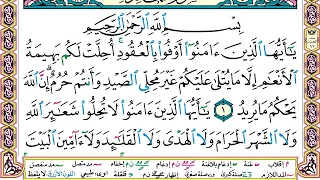 بِسْمِ ٱللَّهِ ٱلرَّحْمَٰنِ ٱلرَّحِيمِ
يَٰٓأَيُّهَا ٱلَّذِينَ ءَامَنُوٓا۟ أَوْفُوا۟ بِٱلْعُقُودِ أُحِلَّتْ لَكُم بَهِيمَةُ
ٱلْأَنْعَٰمِ إِلَّا مَا يُتْلَىٰ عَلَيْكُمْ غَيْرَ مُحِلِّى ٱلصَّيْدِ وَأَنتُمْ حُرُمٌ إِنَّ ٱللَّهَ
يَحْكُمُ مَا يُرِيدُ ١ يَٰٓأَيُّهَا ٱلَّذِينَ ءَامَنُوا۟ لَا تُحِلُّوا۟ شَعَٰٓئِرَ ٱللَّهِ
وَلَا ٱلشَّهْرَ ٱلْحَرَامَ وَلَا ٱلْهَدْىَ وَلَا ٱلْقَلَٰٓئِدَ وَلَآ ءَآمِّينَ ٱلْبَيْتَ